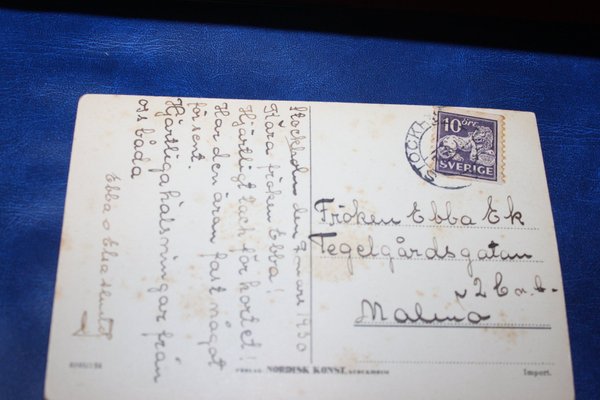 Stockholm den 9 mars 1930
Kära fröken Ebba!
Hjärtligt tack för kortet!
Har den äran fast något
för sent.
Hjärtliga hälsningar från
oss båda
Ebba o
STOCKH
10 ÖRE
SVERIGE
Fröken Ebba Ek
Tegelgårdsgatan
Malmö
NORDISK KONST, STOCKHOLM
Import.